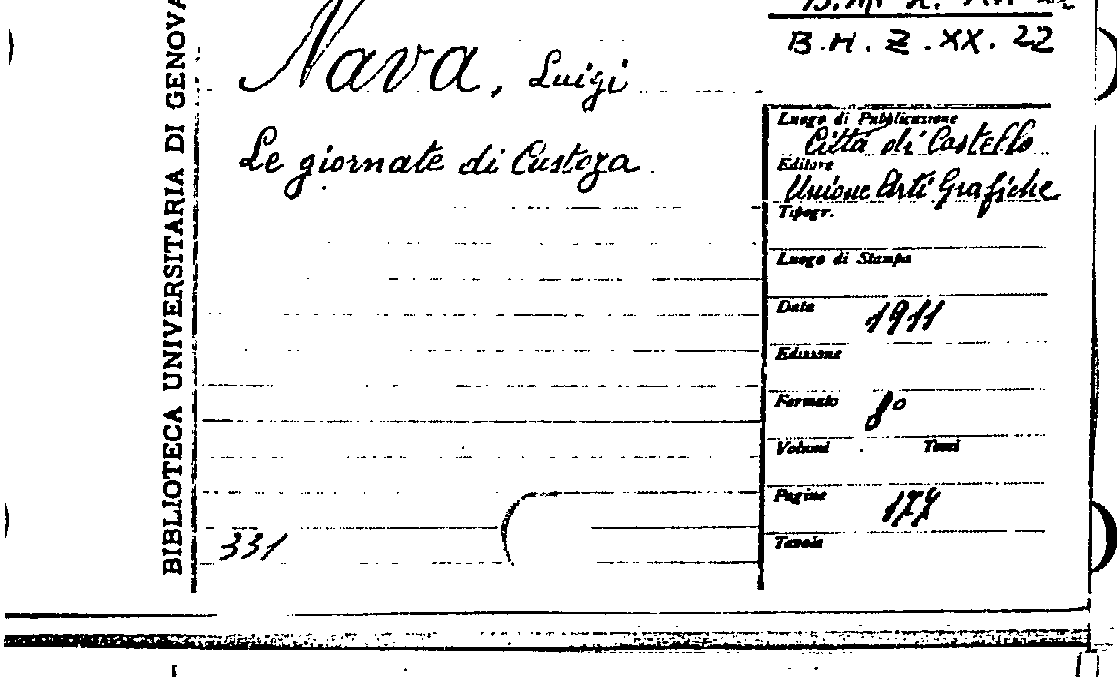 BIBLIOTECA UNIVERSITARIA DI GENOVA
B.H. Z. XX. 22
Nava, Luigi
Le giornate di Custoza
Luogo di Pubblicazione
Città di Castello
Editore
Unione Arti Grafiche
Tipogr.
Luogo di Stampa
Data 1911
Edizione
Formato 8°
Volumi Tomi
Pagine 177
Tavole
331